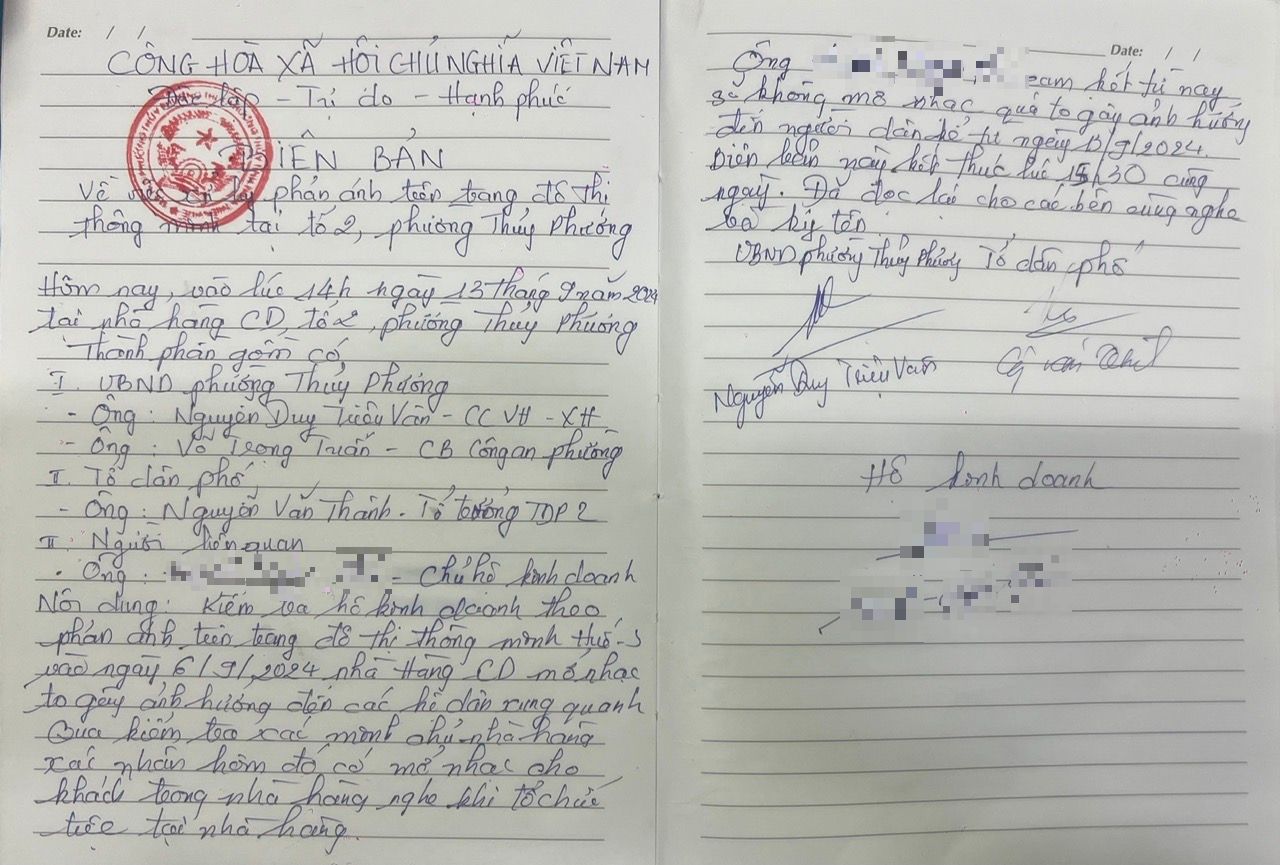 Date: / /
CÔNG HÒA XÃ HỘI CHỦ NGHĨA VIỆT NAM
Độc lập - Tự do - Hạnh phúc
BIÊN BẢN
Về việc xử lý phản ánh trên trang đô thị
thông minh tại tổ 2, phường Thủy Phương
Hôm nay, vào lúc 14h ngày 13 tháng 9 năm 2024
tại nhà hàng CD, tổ 2, phường Thủy Phương
Thành phần gồm có
I. UBND phường Thủy Phương
- Ông: Nguyễn Duy Triều Vân - CC VH - XH
- Ông: Võ Trọng Tuấn - CB Công an phường
II. Tổ dân phố
- Ông: Nguyễn Văn Thành - Tổ trưởng TDP 2
II. Người liên quan
- Ông: - Chủ hộ kinh doanh
Nội dung: Kiểm tra hộ kinh doanh theo
phản ánh trên trang đô thị thông minh Huế-S
vào ngày 6/9/2024 nhà hàng CD mở nhạc
to gây ảnh hưởng đến các hộ dân xung quanh
Qua kiểm tra xác minh chủ nhà hàng
xác nhận hôm đó có mở nhạc cho
khách trong nhà hàng nghe khi tổ chức
tiệc tại nhà hàng.
Date: / /
Ông cam kết từ nay
sẽ không mở nhạc quá to gây ảnh hưởng
đến người dân kể từ ngày 13/9/2024.
Biên bản này kết thúc lúc 15h30 cùng
ngày. Đã đọc lại cho các bên cùng nghe
và ký tên
UBND phường Thủy Phương Tổ dân phố
Nguyễn Duy Triều Vân
Hộ kinh doanh